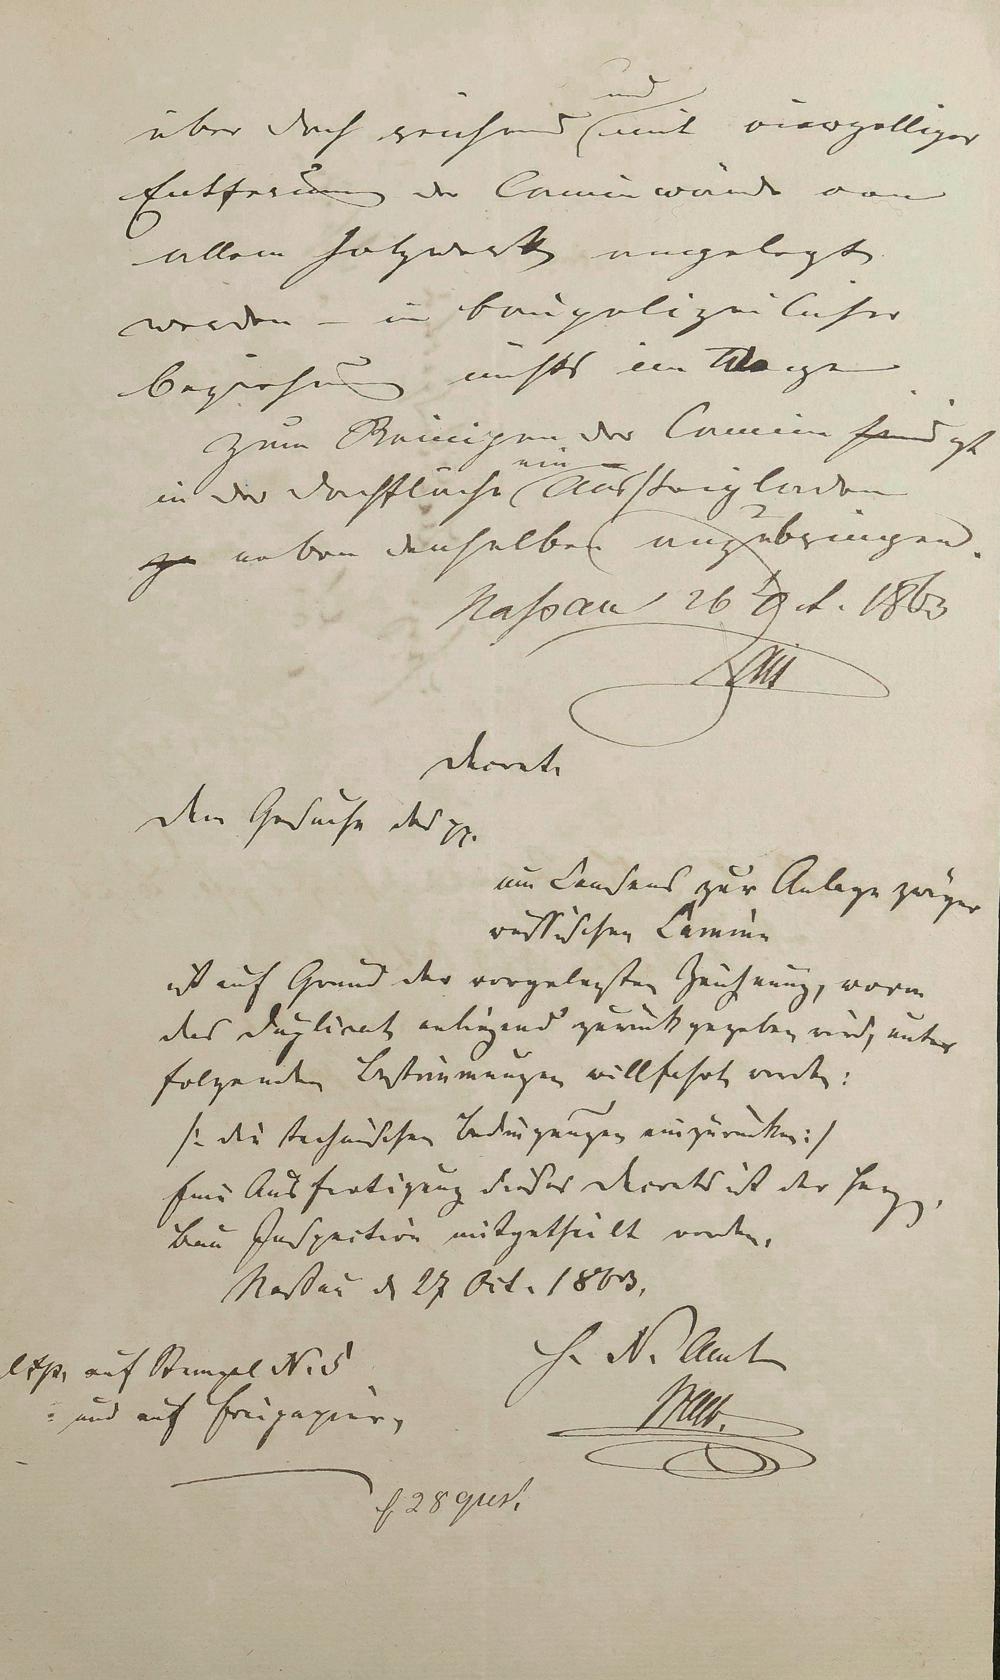 und
über Dach gehend mit vierzölliger
Entfernung der Caminwände von
allem Holzwerk angelegt
werden – in baupolizeilicher
Beziehung nichts im Wege
Zum Reinigen der Camine sind ist
in der Dachfläche ein Aussteigladen
zu neben denselben anzubringen.
Nassau 26 Oct. 1863
Decret.
Dem Gesuche des pp.
um Consens zur Anlage zweyer
russischen Camine
ist auf Grund der vorgelegten Zeichnung, wovon
das Duplicat anliegend zurückgegeben wird, unter
folgenden Bestimmungen willfahrt worden:
/: die technischen Bedingungen einzurücken :/
Eine Ausfertigung dieses Decrets ist der Herzgl.
Bau Inspection mitgetheilt worden.
Nassau d 27 Oct. 1863.
H. N. Amt
auf Stempel N. 5
und auf Freipapier,
28